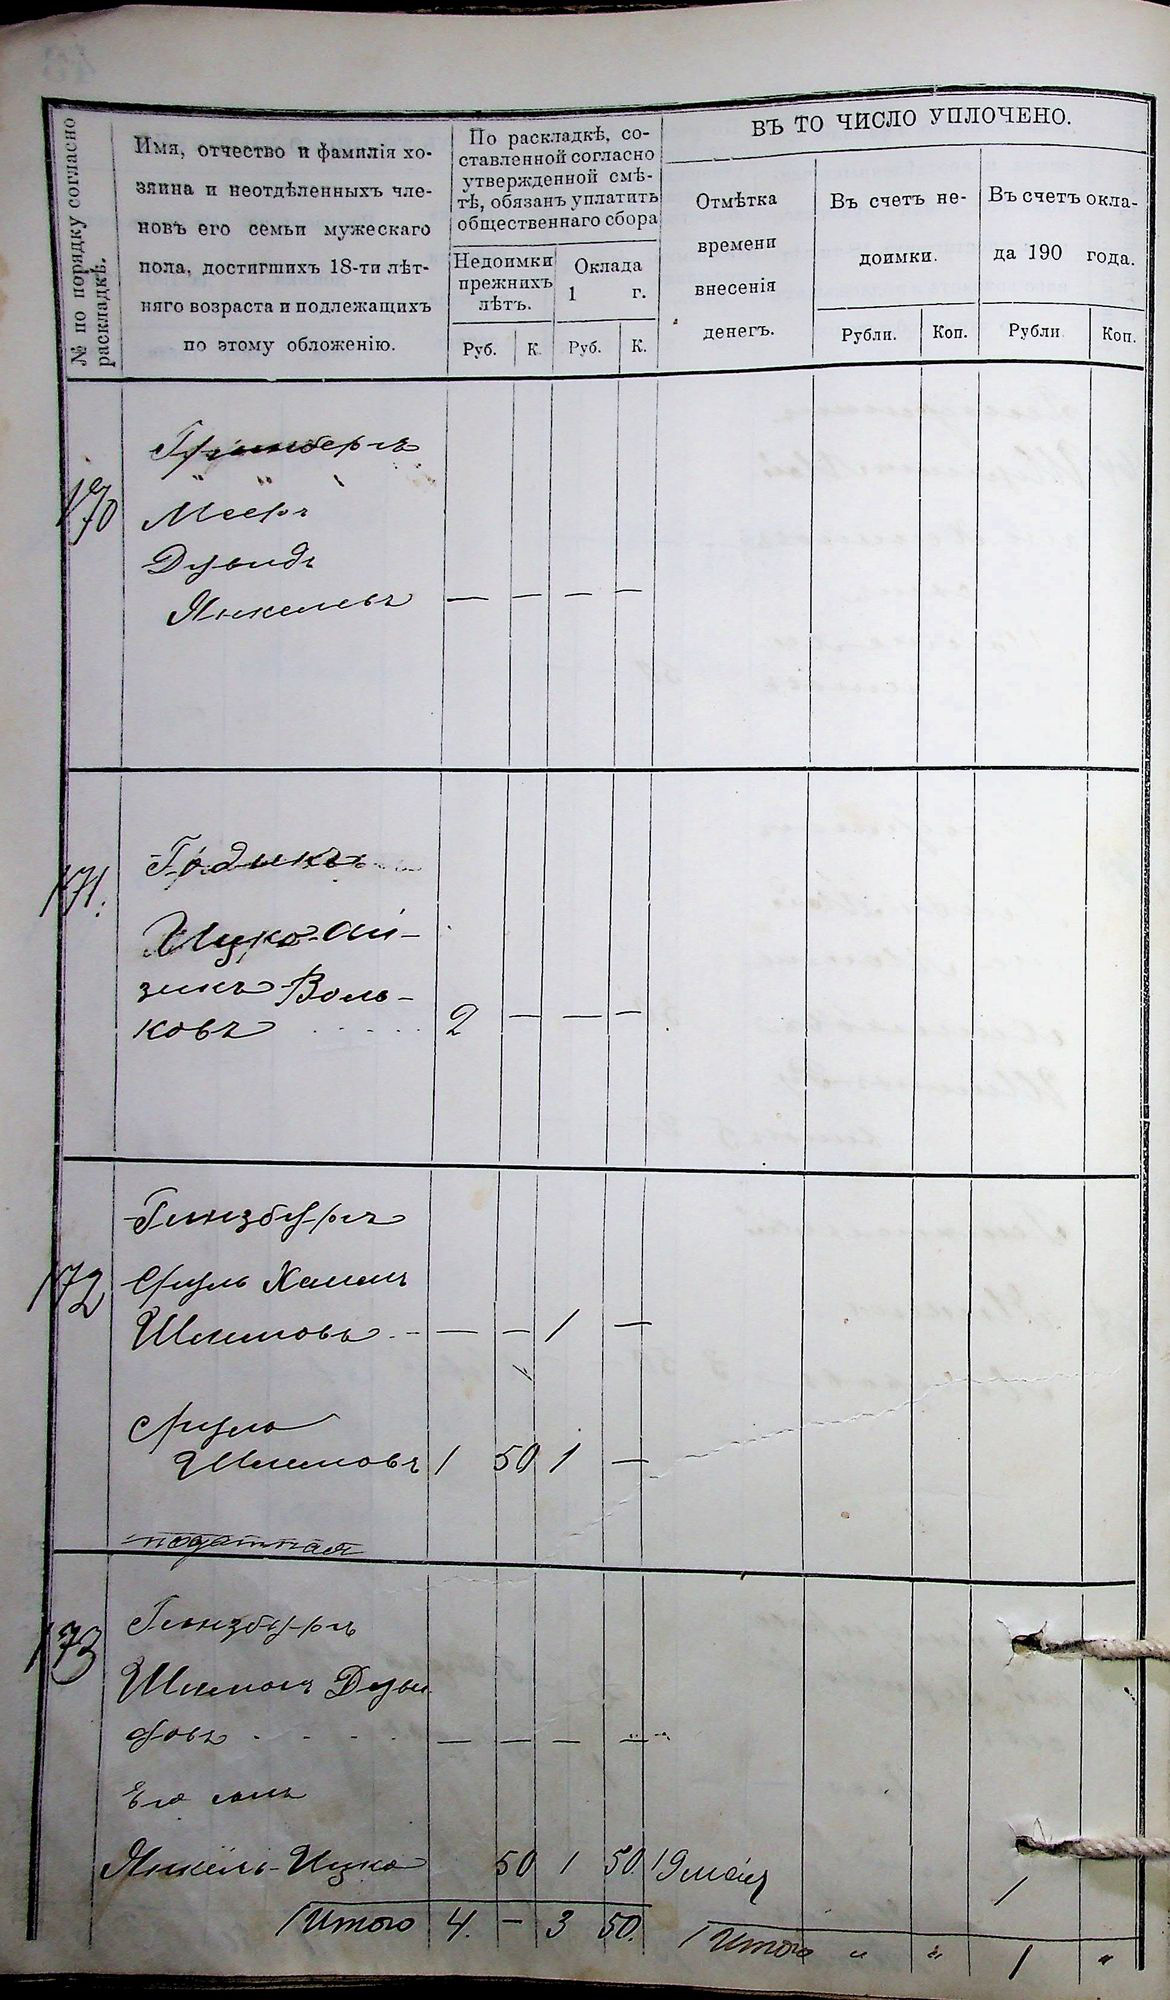 № по порядку согласно
раскладкѣ.
Имя, отчество и фамилія хо-
зяина и неотдѣленныхъ чле-
новъ его семьи мужескаго
пола, достигшихъ 18-ти лѣт-
няго возраста и подлежащихъ
по этому обложенію.
По раскладкѣ, со-
ставленной согласно
утвержденной смѣ-
тѣ, обязанъ уплатить
общественнаго сбора
Недоимки
прежнихъ
лѣтъ.
Оклада
1 г.
Руб. К. Руб. К.
ВЪ ТО ЧИСЛО УПЛОЧЕНО.
Отмѣтка
времени
внесенія
денегъ.
Въ счетъ не-
доимки.
Въ счетъ окла-
да 190 года.
Рубли. Коп. Рубли Коп.
170
Гринбергъ
Мееръ
Дувидъ
Янкелевъ — — — —
171.
Годыкъ
Ицко-Ай-
зикъ Воль-
ковъ 2 — — —
172
Гинзбургъ
Сруль Хаимъ
Шлиомовъ — — 1 —
Сруль
Шлиомовъ 1 50 1 —
173
Гинзбургъ
Шлиома Дуви
довъ — — — —
Его сынъ
Янкель-Ицко 50 1 50 19 мая 1
Итого 4. — 3 50.
Итого " " 1 "